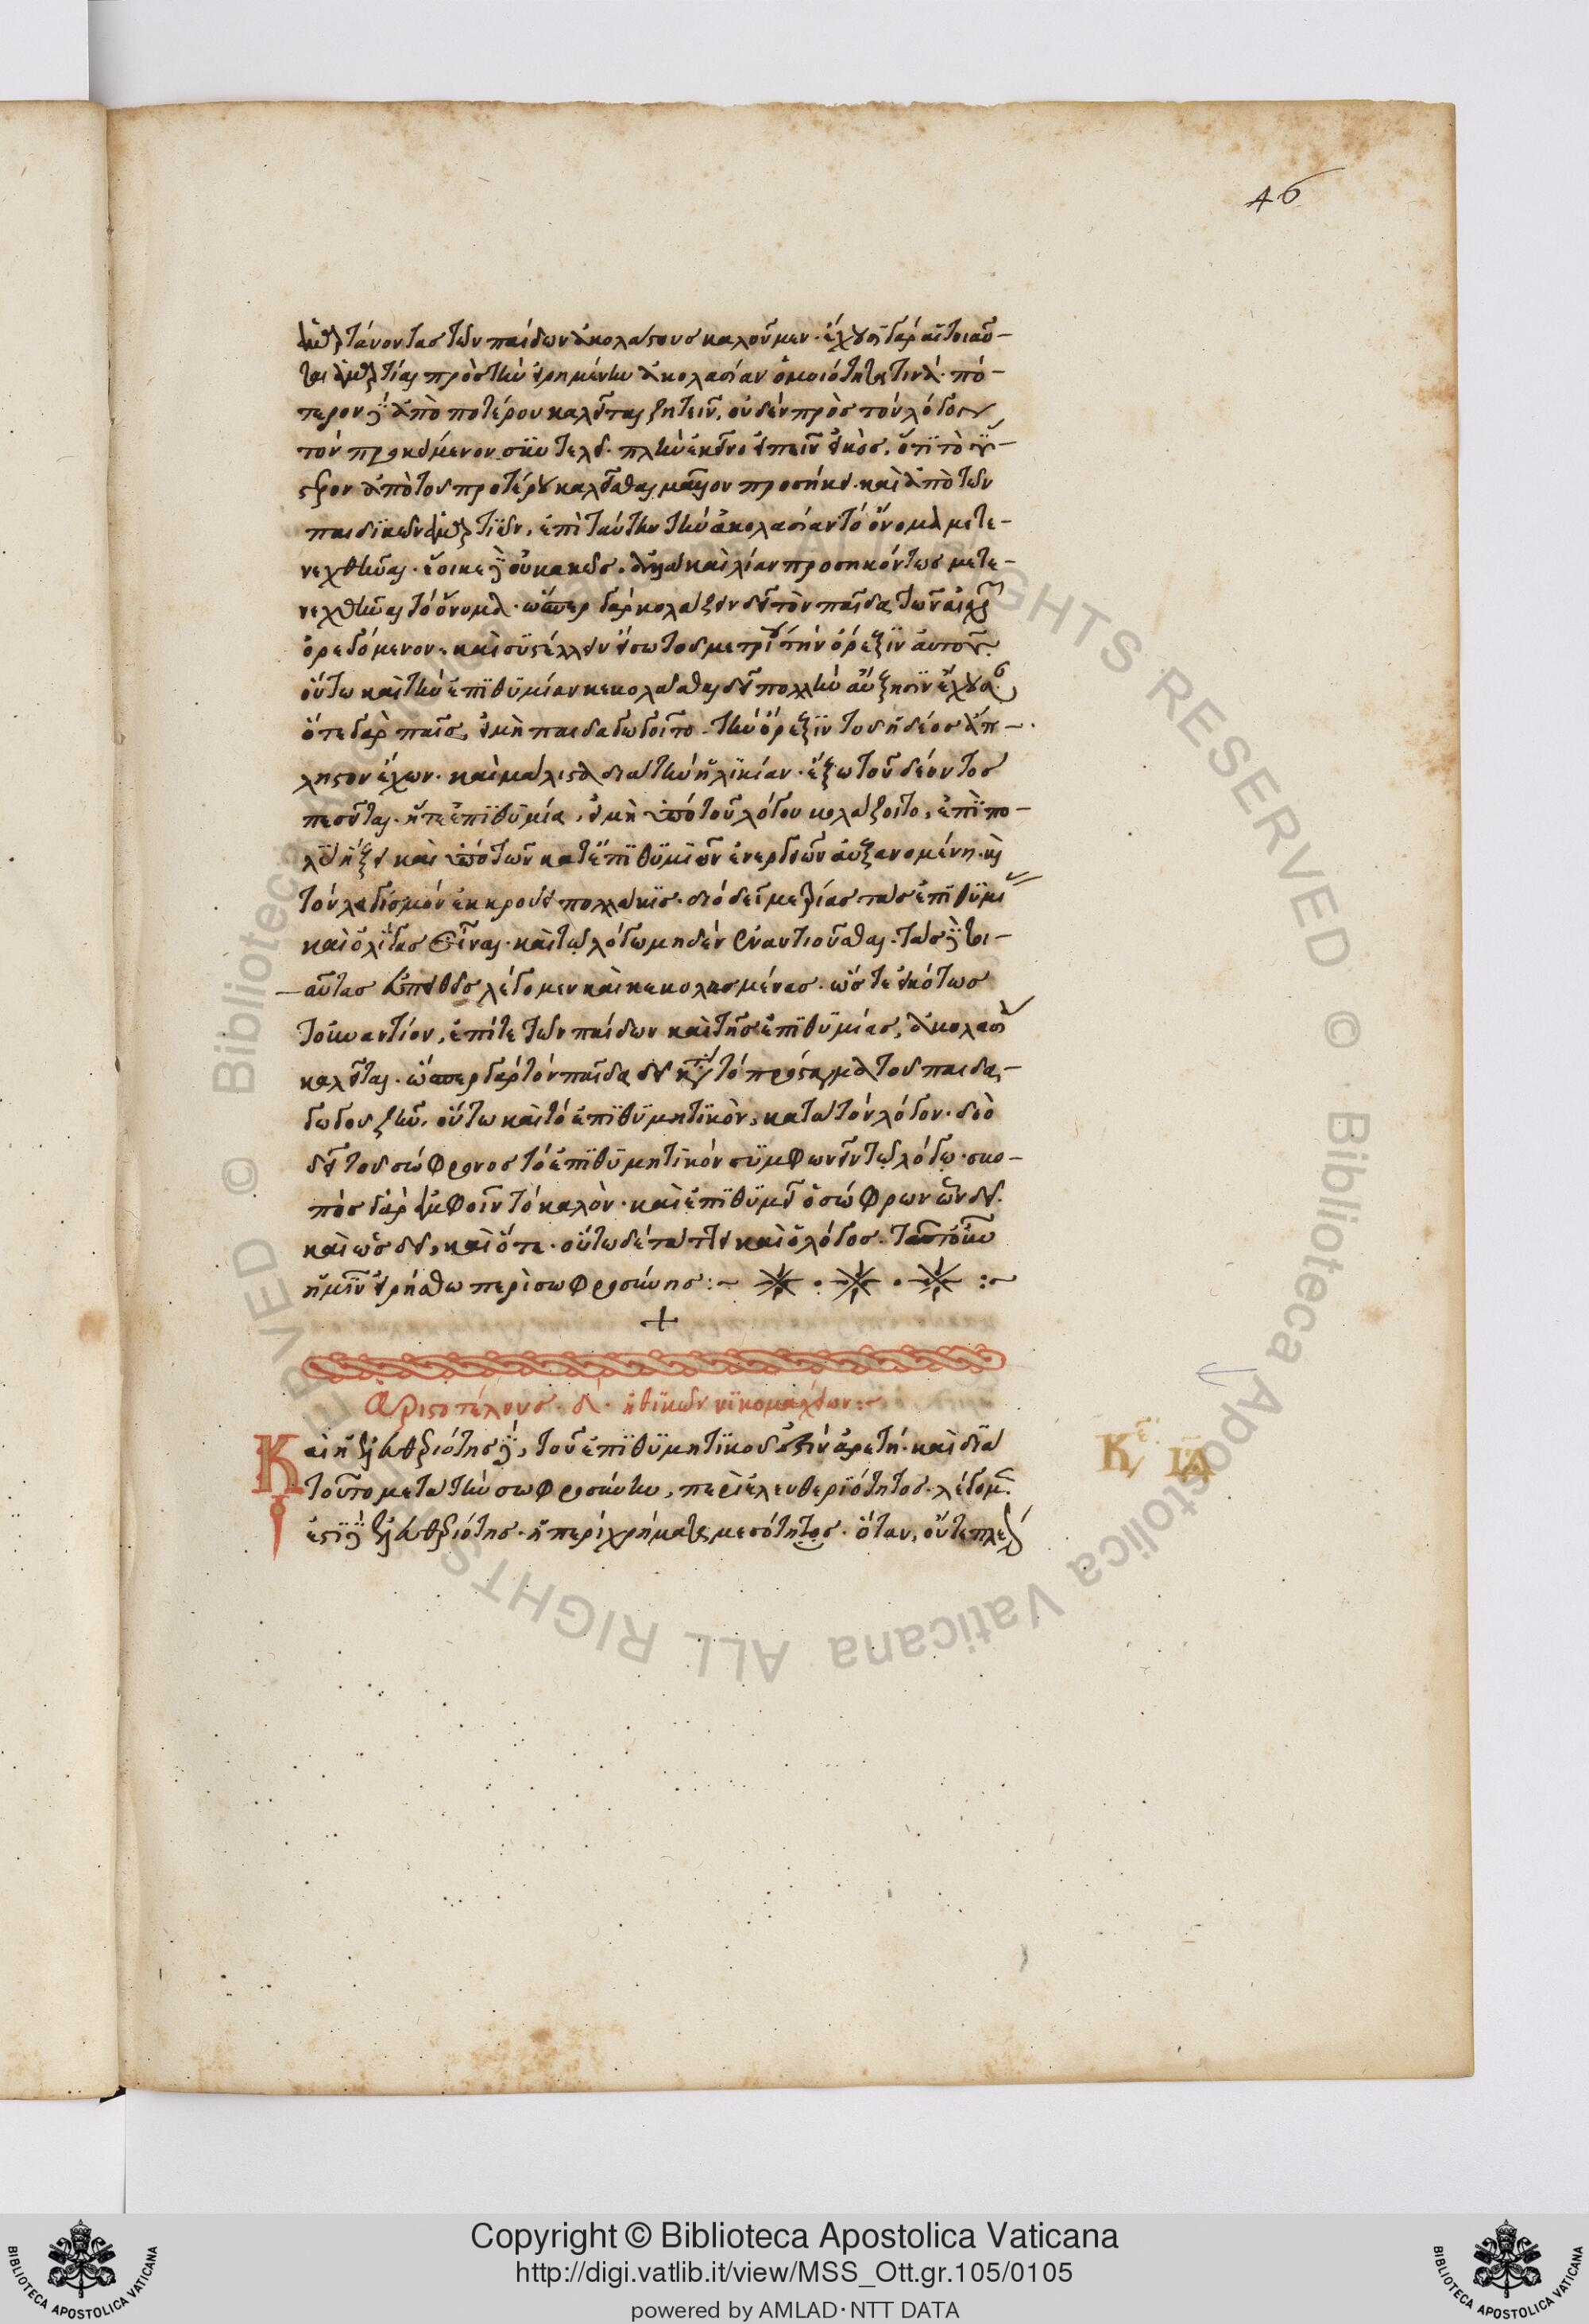 46
ἁμαρτάνοντας τῶν παίδων ἀκολάστους καλοῦμεν· ἔχουσι γὰρ αἱ τοιαῦ-
ται ἁμαρτίαι πρὸς τὴν εἰρημένην ἀκολασίαν ὁμοιότητα τινά· πό-
τερον δὲ ἀπὸ ποτέρου καλεῖται ζητεῖν, οὐδὲν πρὸς τὸν λόγον
τὸν προκείμενον συντελεῖ· πλὴν ἐκεῖνο εἰπεῖν εἰκὸς, ὅτι τὸ ὕ-
στερον ἀπὸ τοῦ προτέρου καλεῖσθαι μᾶλλον προσήκει· καὶ ἀπὸ τῶν
παιδικῶν ἁμαρτιῶν, ἐπὶ ταύτην τὴν ἀκολασίαν τὸ ὄνομα μετε-
νεχθῆναι· ἔοικε δὲ οὐ κακῶς· ἀλλὰ καὶ λίαν προσηκόντως μετε-
νεχθῆναι τὸ ὄνομα· ὥσπερ γὰρ κολάζειν δεῖ τὸν παῖδα τῶν αἰσχρῶν
ὀρεγόμενον· καὶ συστέλλειν εἴσω τοῦ μετρίου τὴν ὄρεξιν αὐτοῦ·
οὕτω καὶ τὴν ἐπιθυμίαν κεκολάσθαι δεῖ πολλὴν αὔξησιν ἔχουσαν·
ὅτε γὰρ παῖς, εἰ μὴ παιδαγωγοῖτο· τὴν ὄρεξιν τοῦ ἡδέος ἄπ-
ληστον ἔχων· καὶ μάλιστα διὰ τὴν ἡλικίαν· ἔξω τοῦ δέοντος
πεσεῖται· ἥ τε ἐπιθυμία, εἰ μὴ ὑπὸ τοῦ λόγου κολάζοιτο, ἐπὶ πο-
λὺ ἥξει καὶ ὑπὸ τῶν κατ' ἐπιθυμίαν ἐνεργειῶν αὐξανομένη· καὶ
τὸν λογισμὸν ἐκκρούει πολλάκις· διὸ δεῖ μετρίας τὰς ἐπιθυμίας
καὶ ὀλίγας εἶναι· καὶ τῷ λόγῳ μηδὲν ἐναντιοῦσθαι· τὰς δὲ τοι-
αύτας εὐπειθεῖς λέγομεν καὶ κεκολασμένας· ὥστε εἰκότως
τοὐναντίον, ἐπί τε τῶν παίδων καὶ τῆς ἐπιθυμίας, ἀκολασία
καλεῖται· ὥσπερ γὰρ τὸν παῖδα δεῖ κατὰ τὸ πρόσταγμα τοῦ παιδα-
γωγοῦ ζῆν, οὕτω καὶ τὸ ἐπιθυμητικὸν, κατὰ τὸν λόγον· διὸ
δεῖ τοῦ σώφρονος τὸ ἐπιθυμητικὸν συμφωνεῖν τῷ λόγῳ· σκο-
πὸς γὰρ ἀμφοῖν τὸ καλὸν· καὶ ἐπιθυμεῖ ὁ σώφρων ὧν δεῖ·
καὶ ὡς δεῖ, καὶ ὅτε· οὕτω δὲ τάττει καὶ ὁ λόγος· ταῦτ' οὖν
ἡμῖν εἰρήσθω περὶ σωφροσύνης :~
Ἀριστοτέλους· δ· ἠθικῶν νικομαχείων :~
Καὶ ἡ ἐλευθεριότης δὲ, τοῦ ἐπιθυμητικοῦ ἐστὶν ἀρετή· καὶ διὰ
τοῦτο μετὰ τὴν σωφροσύνην, περὶ ἐλευθεριότητος λέγομεν·
ἔστι δὲ ἐλευθεριότης· ἡ περὶ χρήματα μεσότητος· ὅταν, οὔτε πλε
Κε ΙΑ
© Biblioteca Apostolica Vaticana ALL RIGHTS RESERVED © Biblioteca Apostolica Vaticana ALL RIGHTS RESERVED
Copyright © Biblioteca Apostolica Vaticana
http://digi.vatlib.it/view/MSS_Ott.gr.105/0105
powered by AMLAD·NTT DATA
BIBLIOTECA APOSTOLICA VATICANA
BIBLIOTECA APOSTOLICA VATICANA